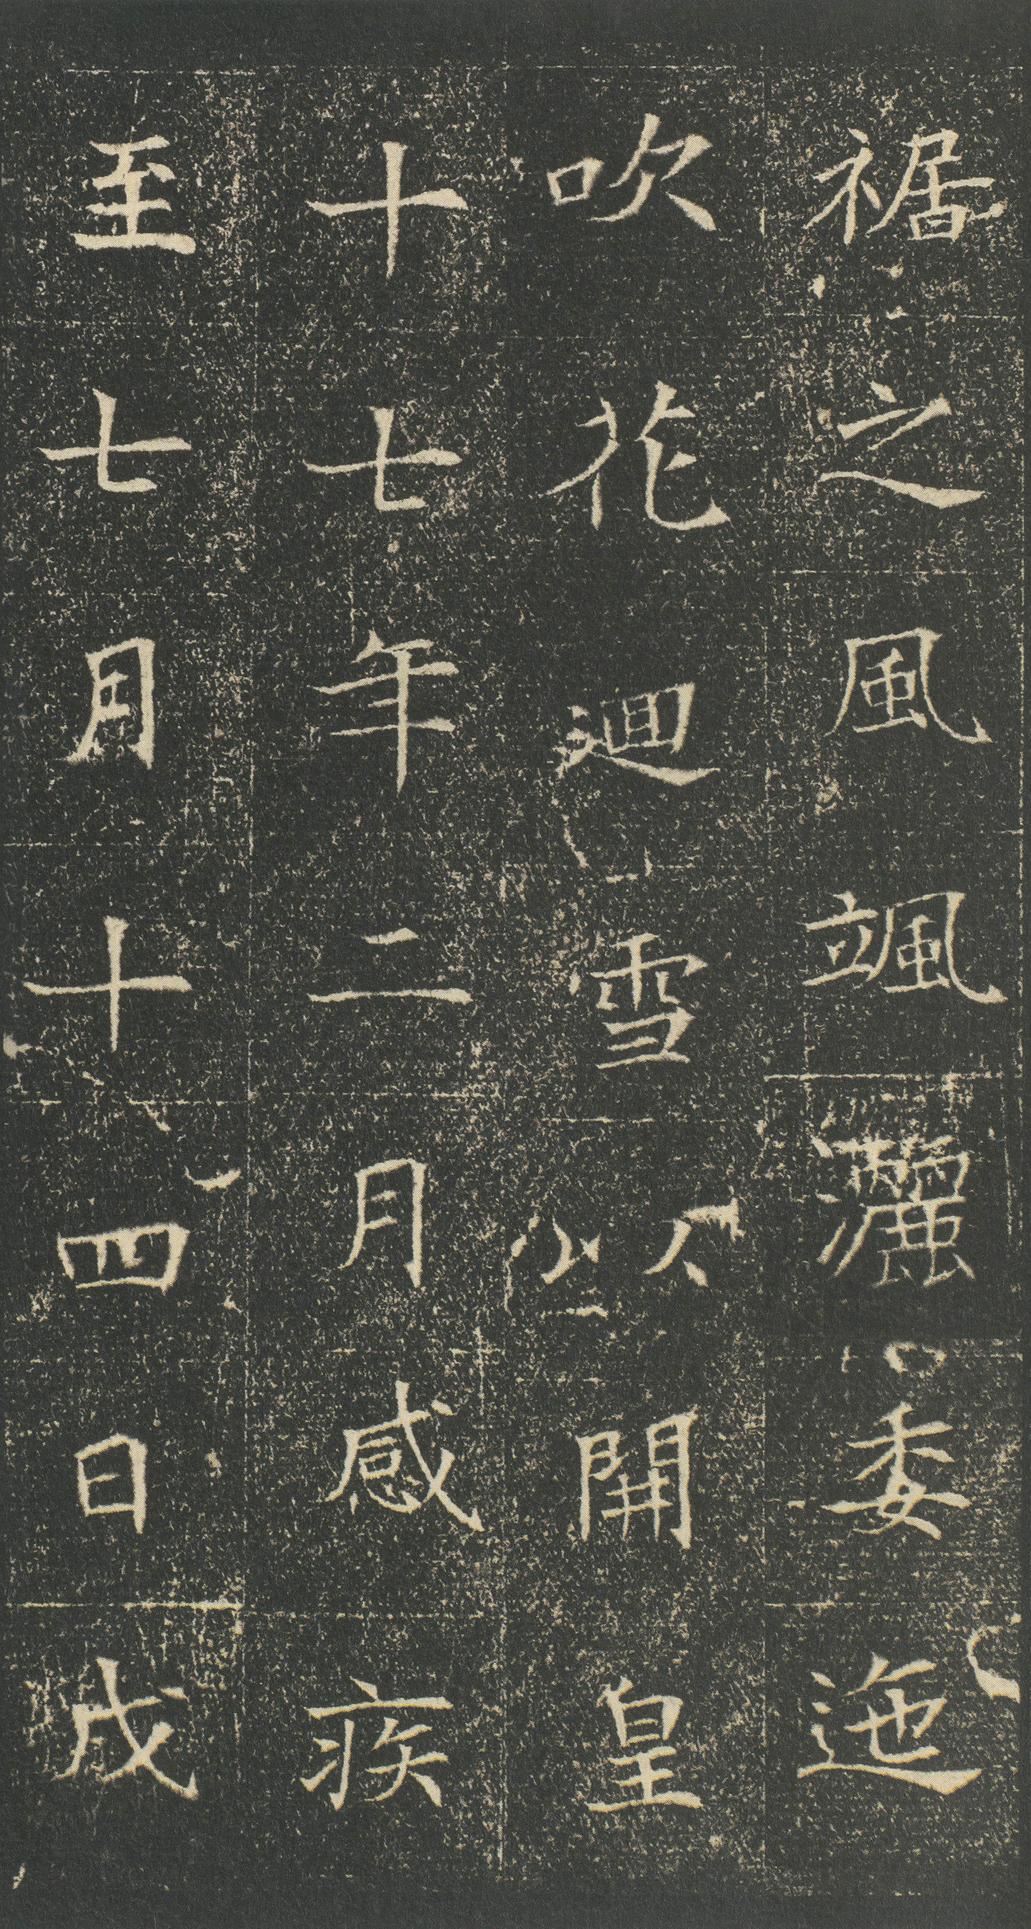 裾之風颯灑委迤
吹花迴雪以開皇
十七年二月感疾
至七月十四日戌